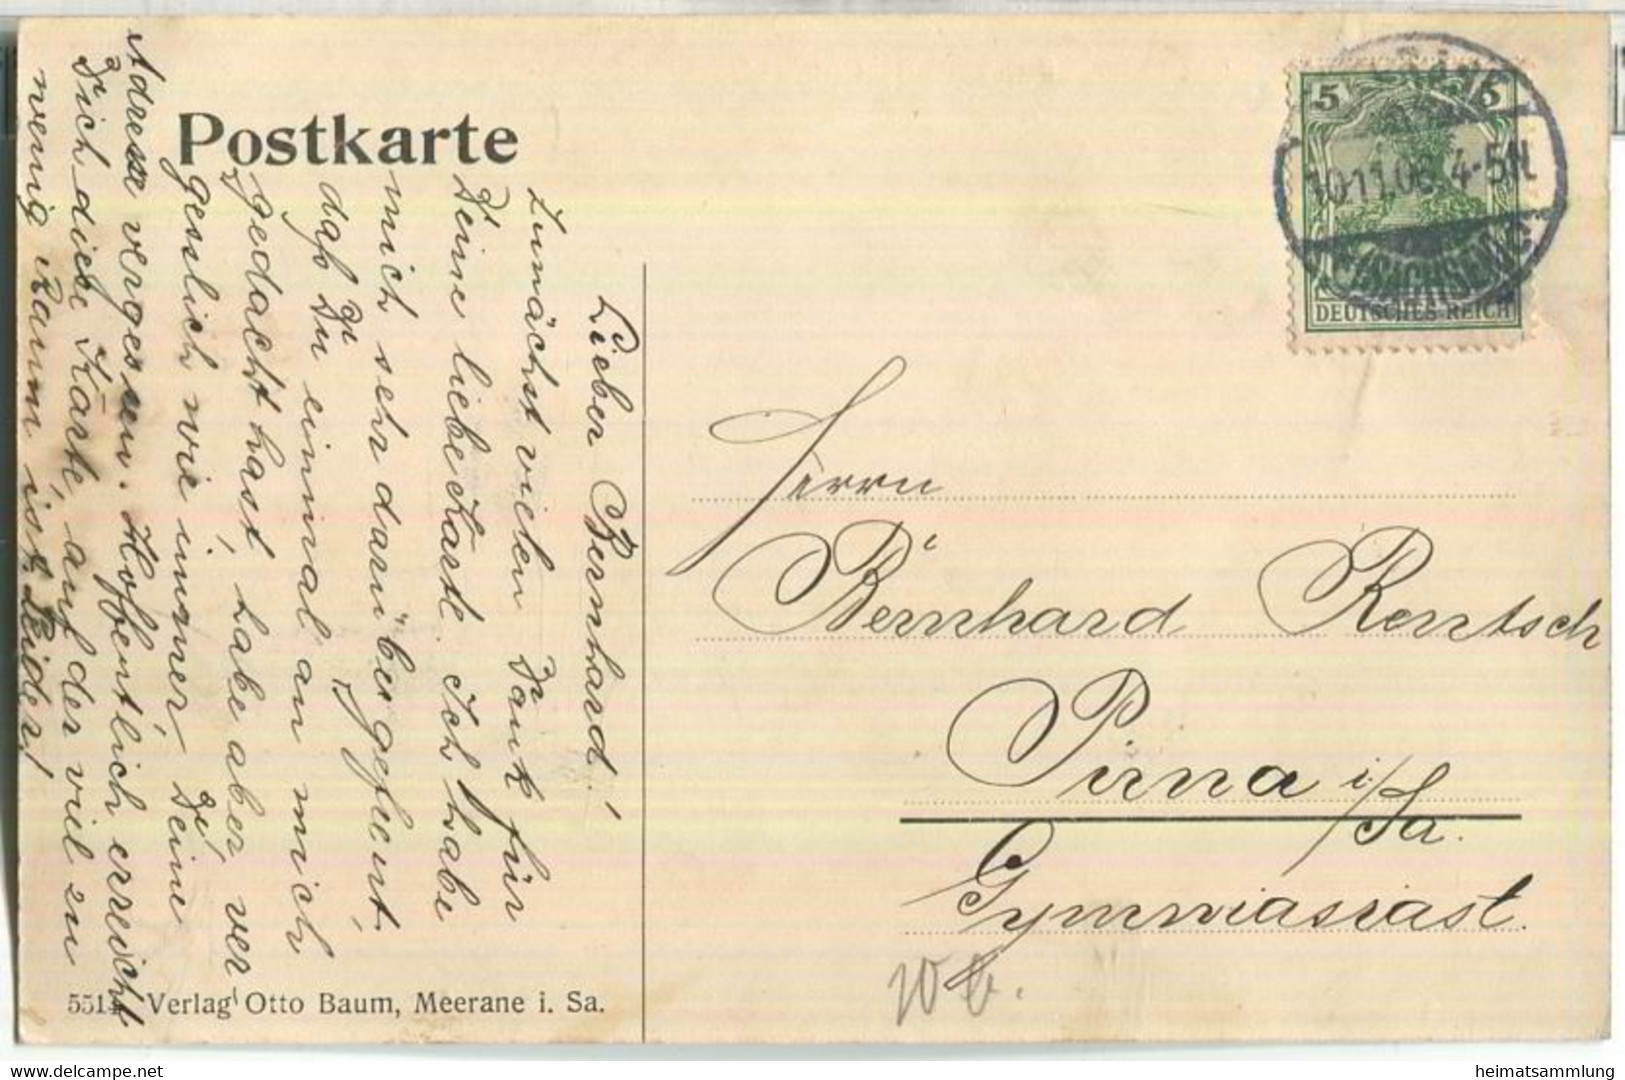 Postkarte
Lieber Bernhard!
Zunächst vielen Dank für
Deine liebe Karte. Ich habe
mich sehr darüber gefreut,
daß Du einmal an mich
gedacht hast, habe aber ver
gesslich wie immer, Deine
Adresse vergessen. Hoffentlich erreicht
Dich diese Karte, auf der viel zu
wenig Raum ist. Leider!
5514 Verlag Otto Baum, Meerane i. Sa.
5 5
10.11.06. 4-5N
(SACHSEN)
DEUTSCHES REICH
Herrn
Bernhard Rentsch
Pirna i/Sa.
Gymnasiast.
delcampe.net
heimatsammlung